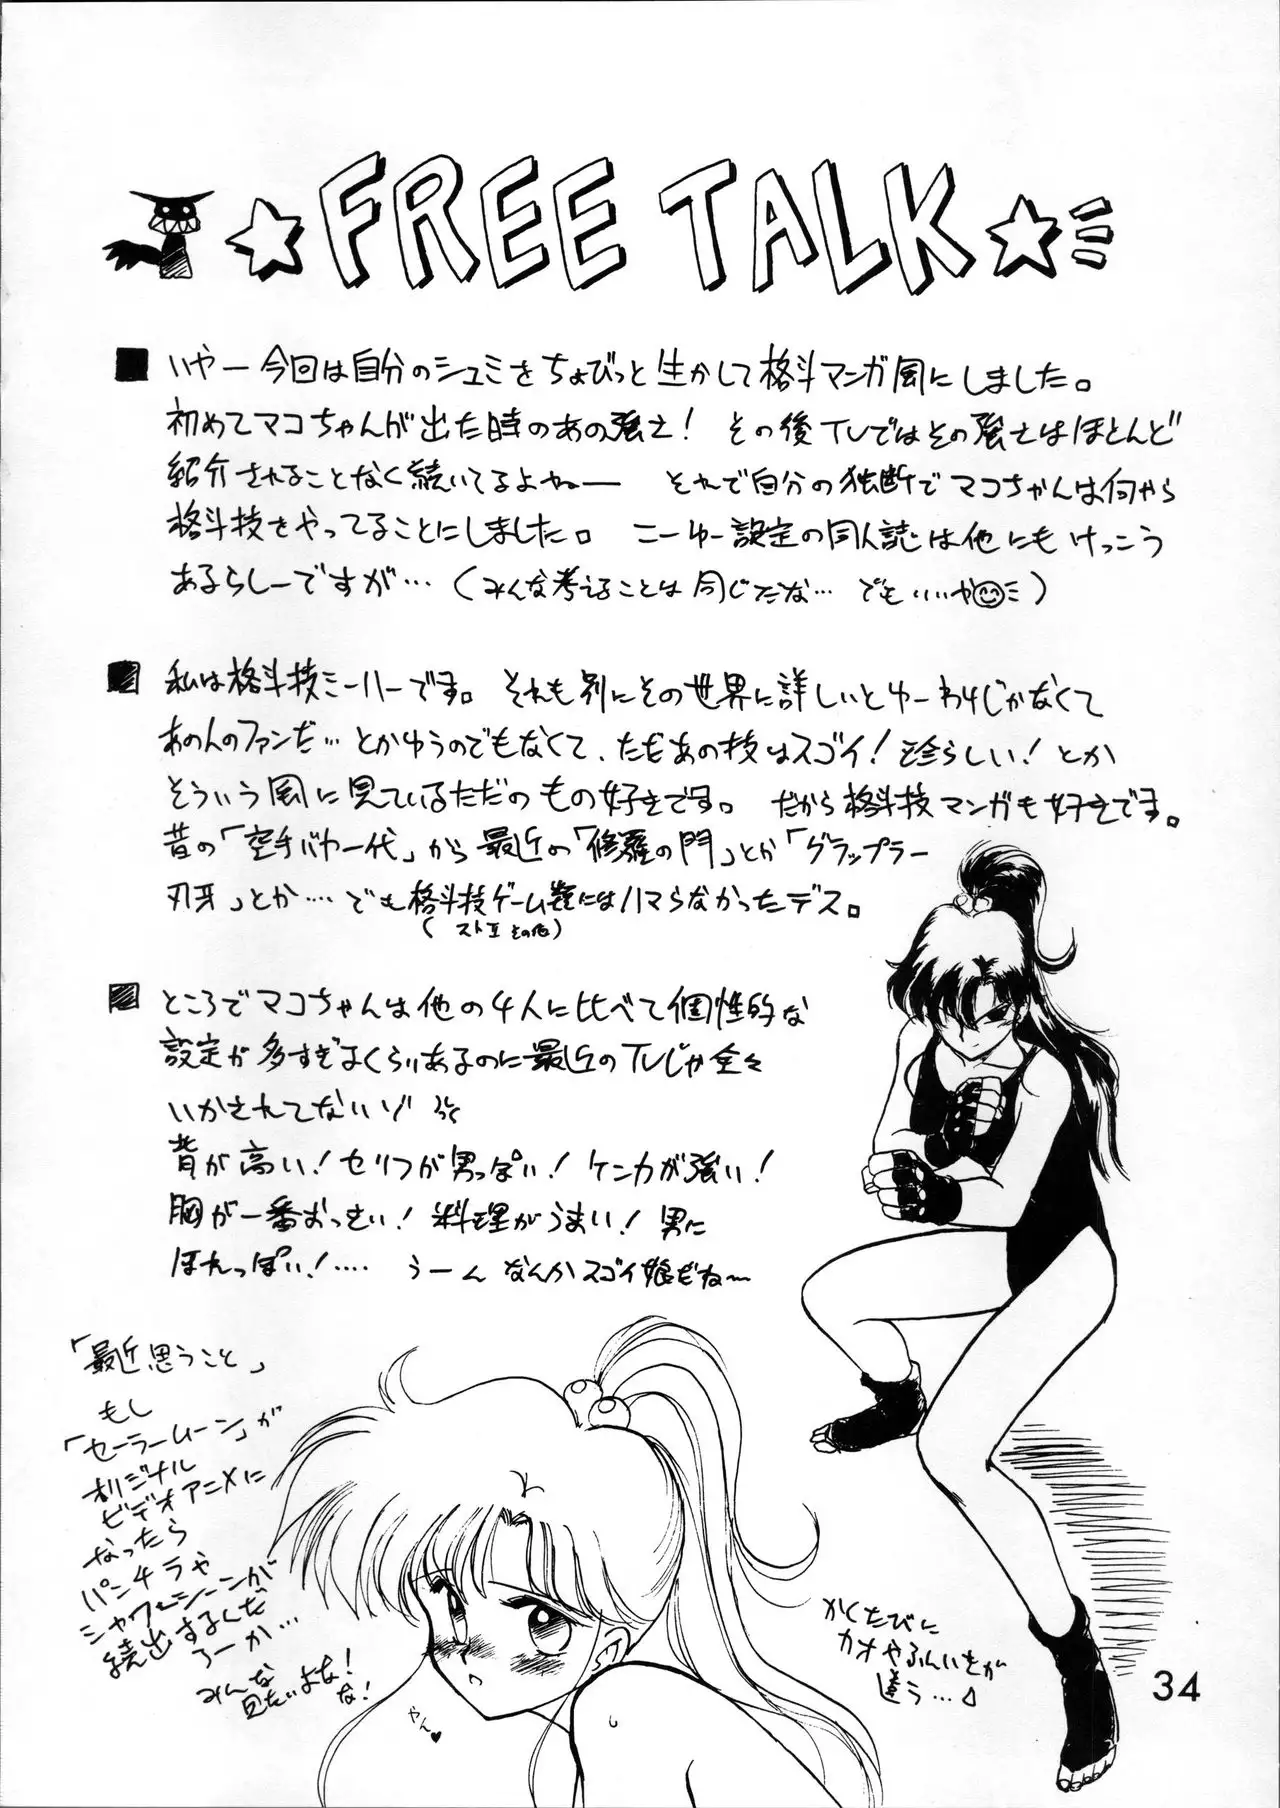 FREE TALK
いやー今回は自分のシュミをちょびっと生かして格斗マンガ風にしました。
初めてマコちゃんが出た時のあの強さ! その後TVではその強さはほとんど
紹介されることなく続いてるよねー それで自分の独断でマコちゃんは何やら
格斗技をやってることにしました。 こーゆー設定の同人誌は他にもけっこう
あるらしーですが…(みんな考えることは同じだな… でもいいや)
私は格斗技ミーハーです。それも別にその世界に詳しいとゆーわけじゃなくて
あの人のファンだ…とかゆうのでもなくて、ただあの技はスゴイ!珍らしい!とか
そういう風に見ているただのもの好きです。だから格斗技マンガも好きです。
昔の「空手バカ一代」から最近の「修羅の門」とか「グラップラー
刃牙」とか…でも格斗技ゲーム類にはハマらなかったデス。
(ストⅡその他)
ところでマコちゃんは他の4人に比べて個性的な
設定が多すぎるくらいあるのに最近のTVじゃ全々
いかされてないゾ
背が高い!セリフが男っぽい!ケンカが強い!
胸が一番おっきい!料理がうまい!男に
ほれっぽい!…. うーん なんかスゴイ娘だね〜
「最近思うこと」
もし
「セーラームーン」が
オリジナル
ビデオアニメに
なったら
パンチラや
シャワーシーンが
続出するくだ
ろーか…
みんな
見たいよな!
な!
やん♥
かくたびに
カオやふんいきが
違う…
34